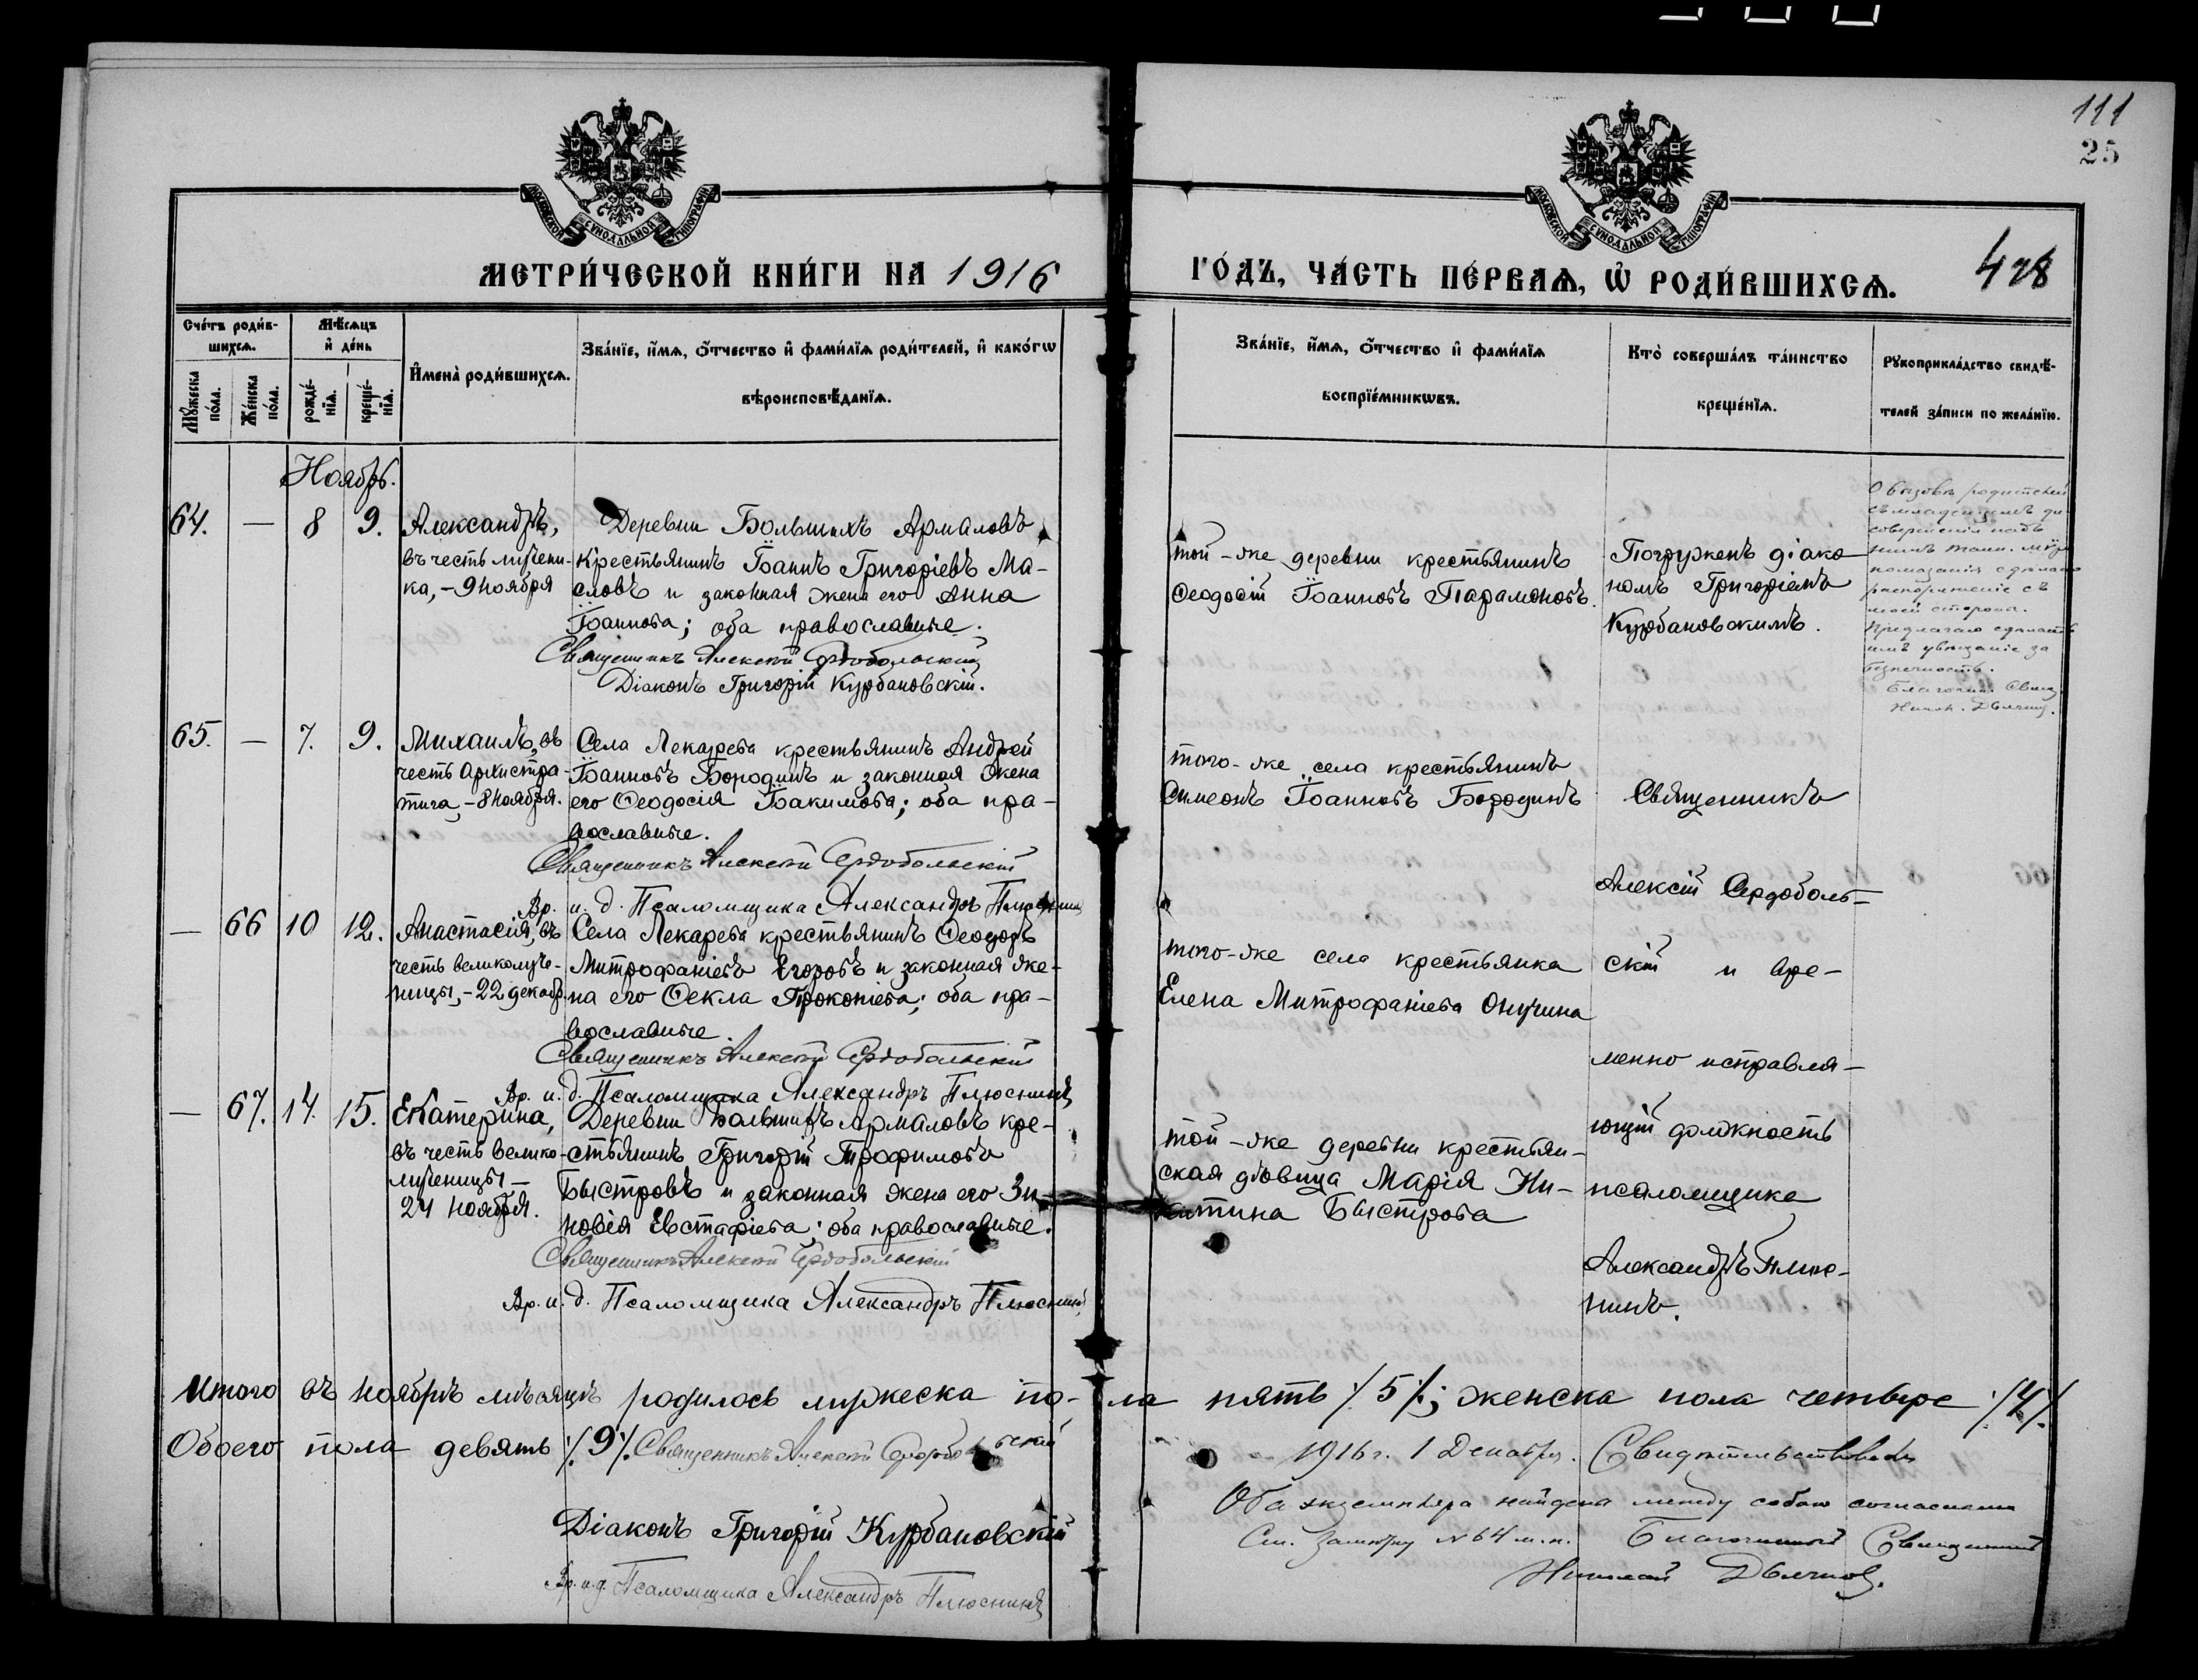 111
25
МОСКОВСКОЙ СѴНОДАЛЬНОЙ ТИПОГРАФІИ
МОСКОВСКОЙ СѴНОДАЛЬНОЙ ТИПОГРАФІИ
МЕТРИ́ЧЕСКОЙ КНИ́ГИ НА 1916
ГО́ДЪ, ЧА́СТЬ ПЕ́РВАѦ, Ѡ҆ РОДИ́ВШИХСѦ.
428
Сче́тъ роди́в-
шихсѧ.
Мѣ́сѧцъ
и҆ де́нь
Мꙋ́жеска
по́ла.
Же́нска
по́ла.
рожде́-
нїѧ.
креще́-
нїѧ.
И҆мена̀ роди́вшихсѧ.
Зва́нїе, и҆́мѧ, ѻ҆́тчество и҆ фами́лїѧ роди́телей, и҆ како́гѡ
вѣроисповѣ́данїѧ.
Зва́нїе, и҆́мѧ, ѻ҆́тчество и҆ фами́лїѧ
воспрїе́мникѡвъ.
Кто̀ соверша́лъ та́инство
креще́нїѧ.
Рꙋкоприкла́дство свидѣ́-
телей за́писи по жела́нїю.
Ноябрь.
64. — 8 9. Александръ,
въ честь мучени-
ка, - 9 ноября
Деревни Большихъ Армаловъ
крестьянинъ Іоаннъ Григоріевъ Ма-
словъ и законная жена его Анна
Іоаннова; оба православные.
Священникъ Алексѣй Сердобольскій
Діаконъ Григорій Курбановскій.
той-же деревни крестьянинъ
Ѳеодосій Іоанновъ Парамоновъ.
Погруженъ діако-
номъ Григоріемъ
Курбановскимъ.
О вызовѣ родителей
съ младенцемъ для
совершенія надъ
нимъ таин. мѵро-
помазанія сдѣлано
распоряженіе съ
моей стороны.
Предлагаю сдѣлать
имъ увѣщаніе за
безпечность.
Благочин. Свящ.
65. — 7. 9. Михаилъ, въ
честь Архистра-
тига, - 8 ноября.
Села Лекарева крестьянинъ Андрей
Іоанновъ Бородинъ и законная жена
его Ѳеодосія Іоакимова; оба пра-
вославные.
Священникъ Алексѣй Сердобольскій
Вр. и. д. Псаломщика Александръ Плюснинъ
того-же села крестьянинъ
Симеонъ Іоанновъ Бородинъ
Священникъ
Алексій Сердоболь-
скій и вре-
менно исправля-
ющій должность
псаломщика
Александръ Плюс-
нинъ.
— 66 10 12. Анастасія, въ
честь великомуче-
ницы, - 22 декабр.
Села Лекарева крестьянинъ Ѳеодоръ
Митрофаніевъ Егоровъ и законная же-
на его Ѳекла Прокопіева; оба пра-
вославные.
Священникъ Алексѣй Сердобольскій
Вр. и. д. Псаломщика Александръ Плюснинъ
того-же села крестьянка
Елена Митрофаніева Онучина
— 67. 14. 15. Екатерина,
въ честь велико-
мученицы -
24 ноября.
Деревни Большихъ Армаловъ кре-
стьянинъ Григорій Трофимовъ
Быстровъ и законная жена его Зи-
новія Евстафіева; оба православные.
Священникъ Алексѣй Сердобольскій
Вр. и. д. Псаломщика Александръ Плюснинъ
той-же деревни крестьян-
ская дѣвица Марія Ни-
китина Быстрова
Итого въ ноябрѣ мѣсяцѣ родилось мужеска по-ла пять /5/; женска пола четверо /4/.
Обоего пола девять /9/. Священникъ Алексѣй Сердобольскій
Діаконъ Григорій Курбановскій
Вр. и. д. Псаломщика Александръ Плюснинъ
1916 г. 1 Декабря. Свидѣтельствовалъ
Оба экземпляра найдены между собою согласными
См. замѣтку № 64 м. п. Благочинный Священникъ
Николай